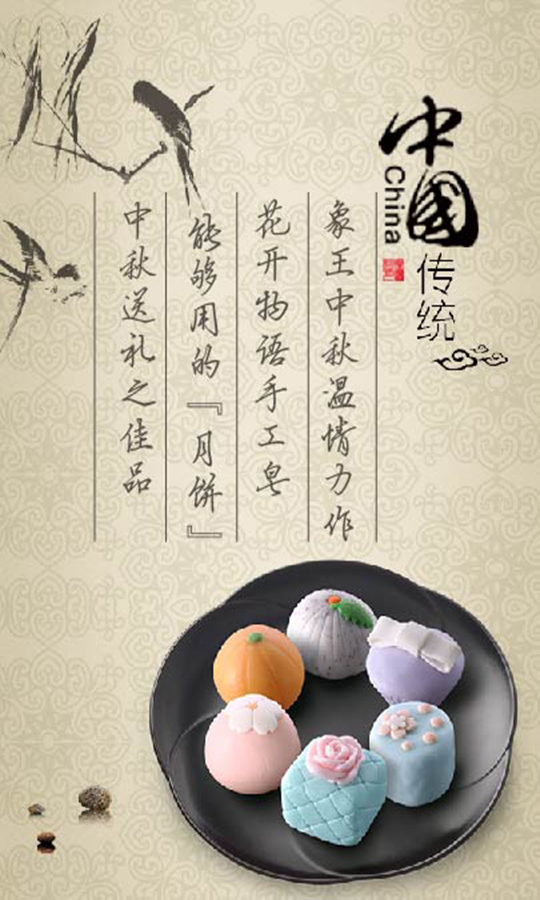 中国
China
传统
象王中秋温情力作
花开物语手工皂
能够用的『月饼』
中秋送礼之佳品